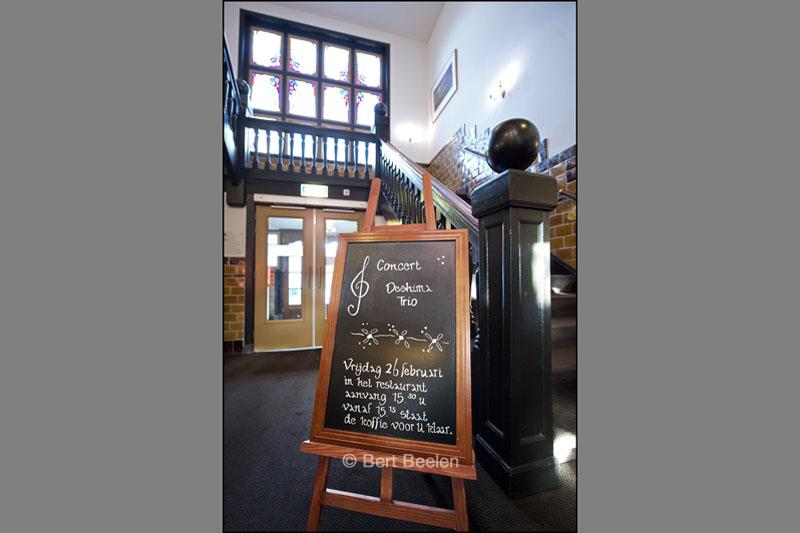 Concert
Deshima
Trio
Vrijdag 26 februari
in het restaurant
aanvang 15.30 u
vanaf 15.15 staat
de koffie voor U klaar.
© Bert Beelen